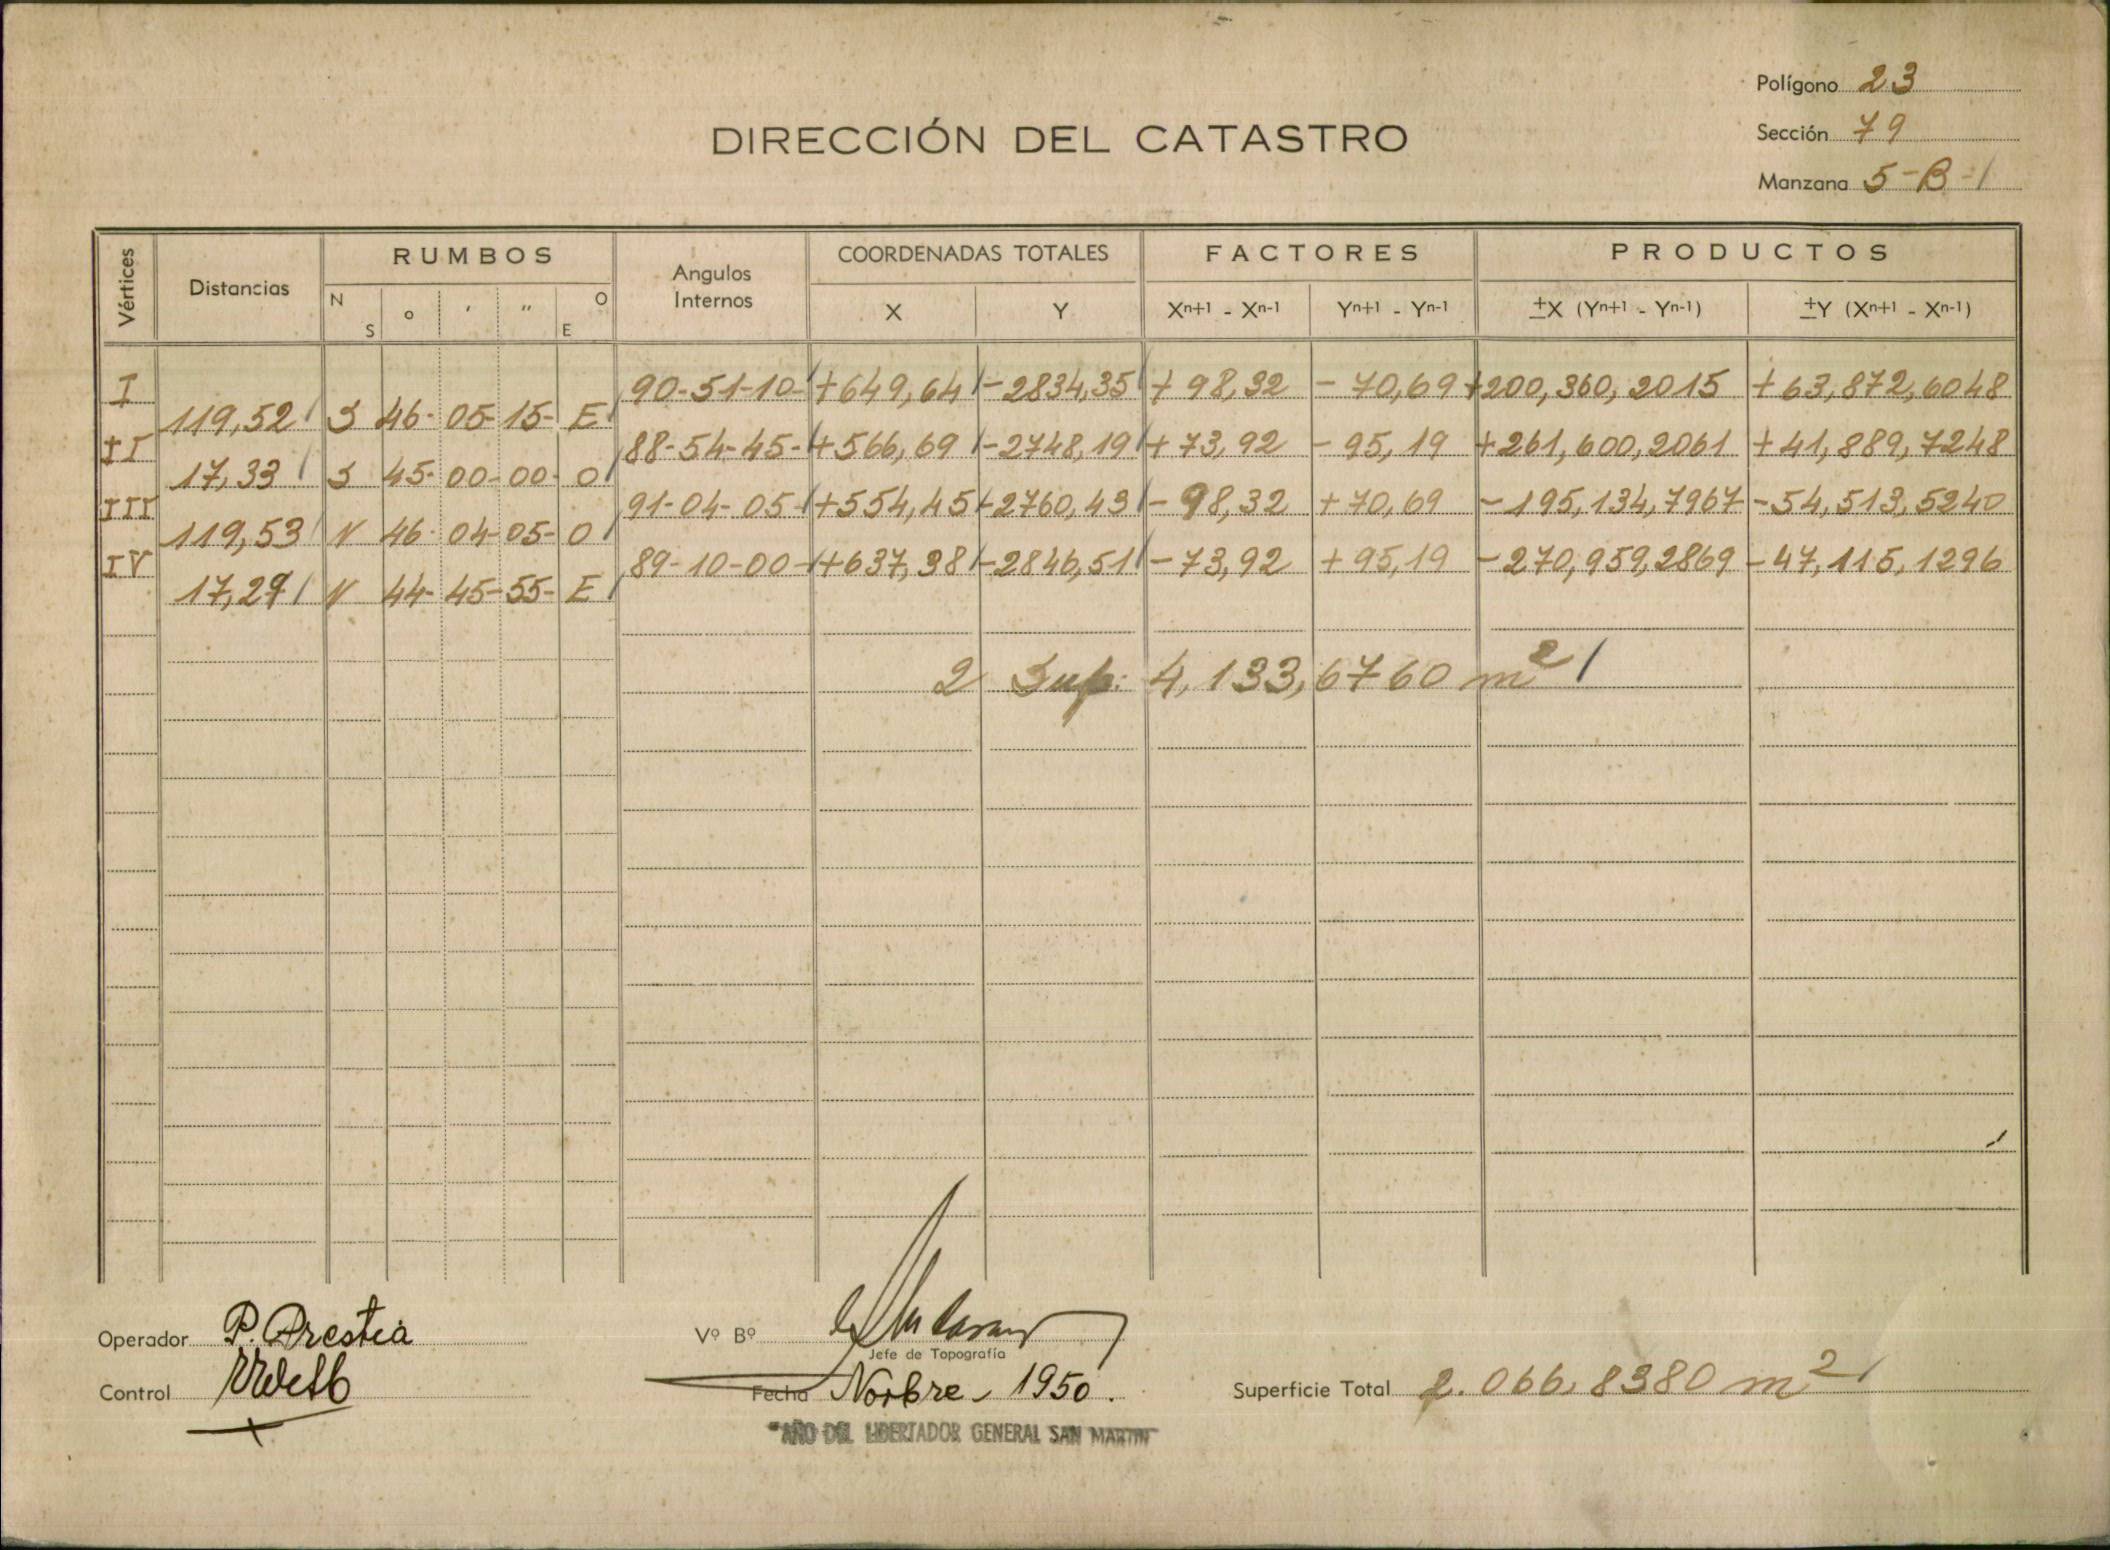 Polígono 23
DIRECCIÓN DEL CATASTRO
Sección 79
Manzana 5-B-1
Vértices Distancias RUMBOS Angulos Internos COORDENADAS TOTALES FACTORES PRODUCTOS
N S ° ' " O E X Y Xn+1 - Xn-1 Yn+1 - Yn-1 ±X (Yn+1 - Yn-1) ±Y (Xn+1 - Xn-1)
I 90-51-10- +649,64 -2834,35 +98,32 -70,69 +200,360,2015 +63,872,6048
119,52 S 46- 05- 15- E
II 88-54-45- +566,69 -2748,19 +73,92 -95,19 +261,600,2061 +41,889,7248
17,33 S 45- 00- 00- O
III 91-04-05- +554,45 -2760,43 -98,32 +70,69 -195,134,7967 -54,513,5240
119,53 N 46- 04- 05- O
IV 89-10-00- +637,38 -2846,51 -73,92 +95,19 -270,959,2869 -47,115,1296
17,27 N 44- 45- 55- E
2 Sup: 4,133,6760 m2
Operador P. Prestia
Vº Bº
Jefe de Topografía
Control
Fecha Novbre - 1950.
Superficie Total 2.066,8380 m2
"AÑO DEL LIBERTADOR GENERAL SAN MARTIN"